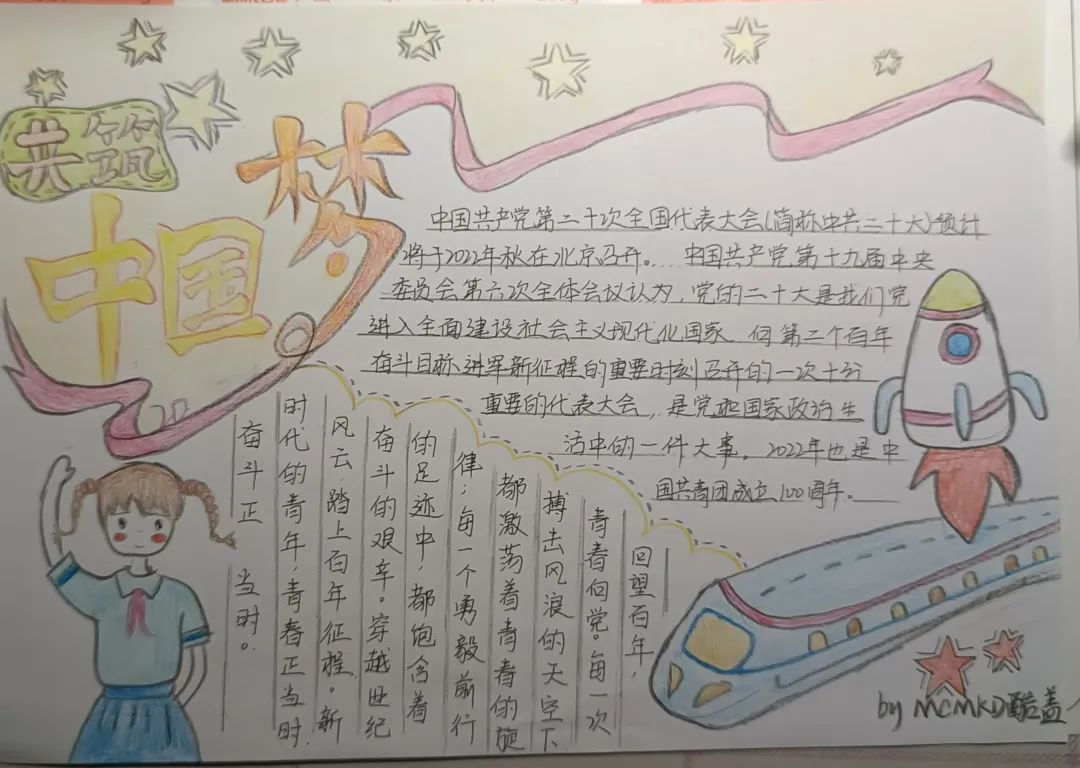 共筑
中国梦
中国共产党第二十次全国代表大会(简称中共二十大)预计
将于2022年秋在北京召开。...中国共产党第十九届中央
委员会第六次全体会议认为，党的二十大是我们党
进入全面建设社会主义现代化国家、向第二个百年
奋斗目标进军新征程的重要时刻召开的一次十分
重要的代表大会，是党和国家政治生
活中的一件大事。2022年也是中
国共青团成立100周年。
回望百年，
青春向党。每一次
搏击风浪的天空下
都激荡着青春的旋
律；每一个勇毅前行
的足迹中，都饱含着
奋斗的艰辛。穿越世纪
风云，踏上百年征程。新
时代的青年，青春正当时，
奋斗正当时。
by MCMKD酷盖